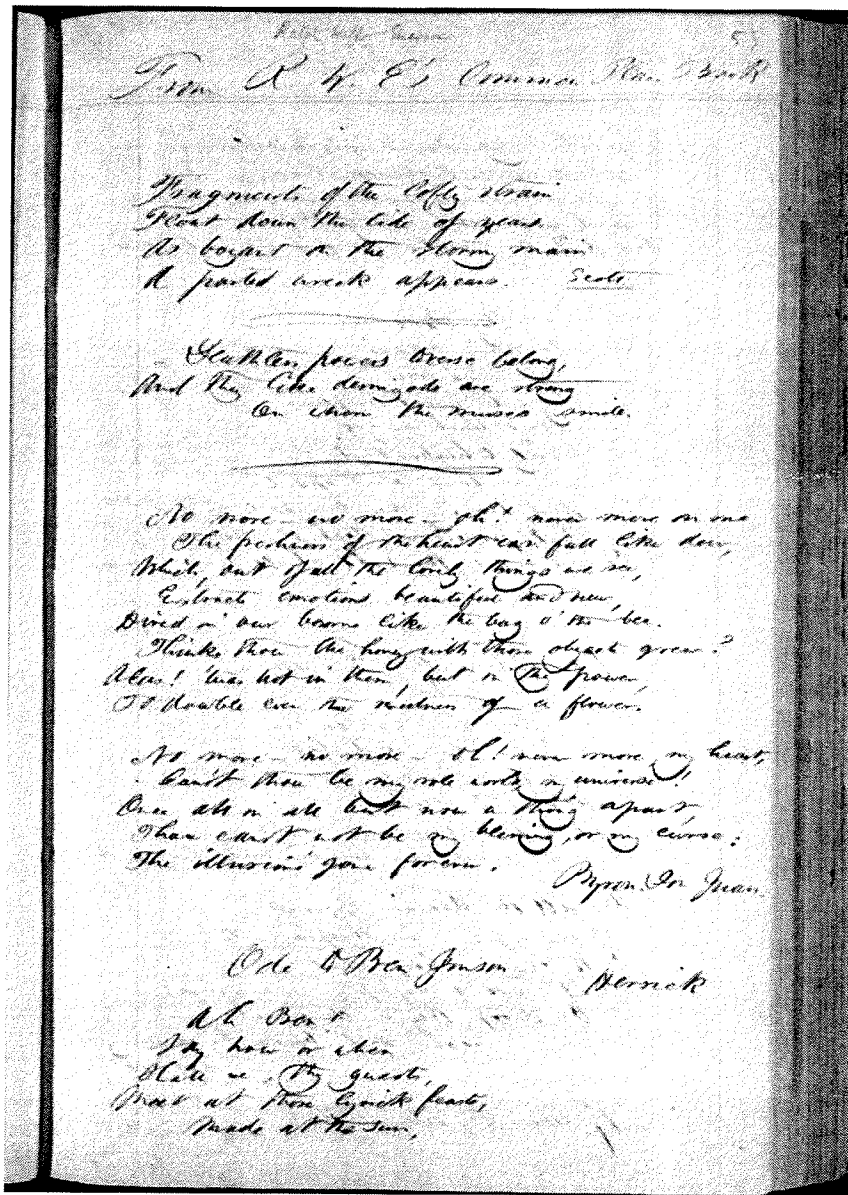 From R W E's Common Place Book
Fragments of the lofty strain
Float down the tide of years
As buoyant on the stormy main
A parted wreck appears. Scott
Deathless powers to verse belong,
And they like demigods are strong
On whom the muses smile.
No more – no more – oh! never more on me
The freshness of the heart can fall like dew,
Which, out of all the lovely things we see,
Extracts emotions beautiful and new,
Hived in our bosoms like the bag o' the bee.
Thinkst thou the honey with those objects grew?
Alas! 'twas not in them, but in thy power,
To double even the sweetness of a flower.
No more – no more – oh! never more, my heart,
Canst thou be my sole world, my universe!
Once all in all but now a thing apart,
Thou canst not be my blessing, or my curse:
The illusion's gone forever.
Byron. Don Juan.
Ode to Ben Jonson Herrick
Ah Ben!
Say how or when
Shall we, thy guests,
Meet at those lyrick feasts,
Made at the Sun,